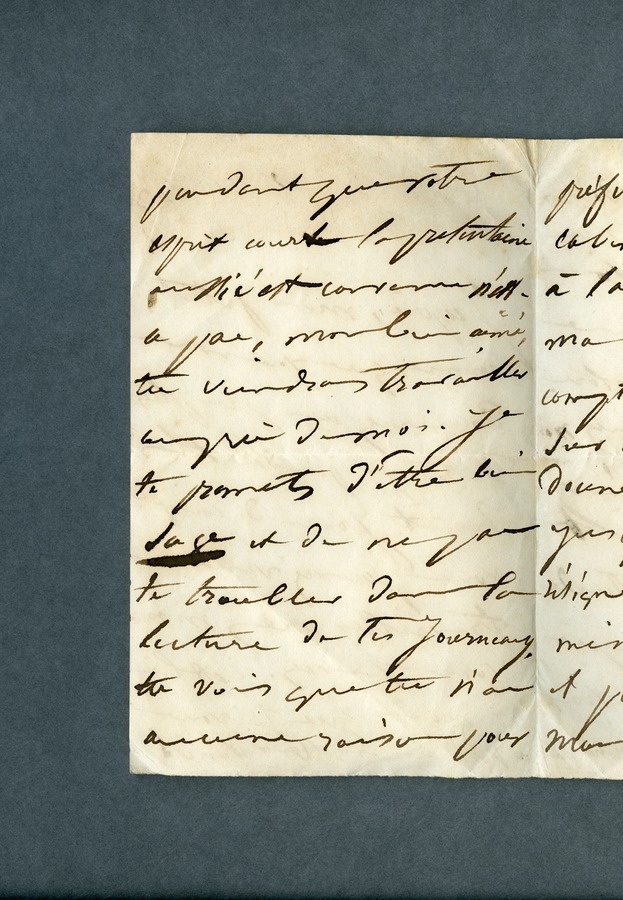 pendant que votre
esprit court la pretentaine
aussi c'est convenu n'est-
ce pas, mon bien aimé,
tu viendras travailler
auprès de moi. Je
te promets d'être bien
sage et de ne pas
te troubler dans la
lecture de tes journeaux,
tu vois que tu n'as
aucune raison pour
préfé
cabin
à la
ma
compt
sur
Donne
résign
et p